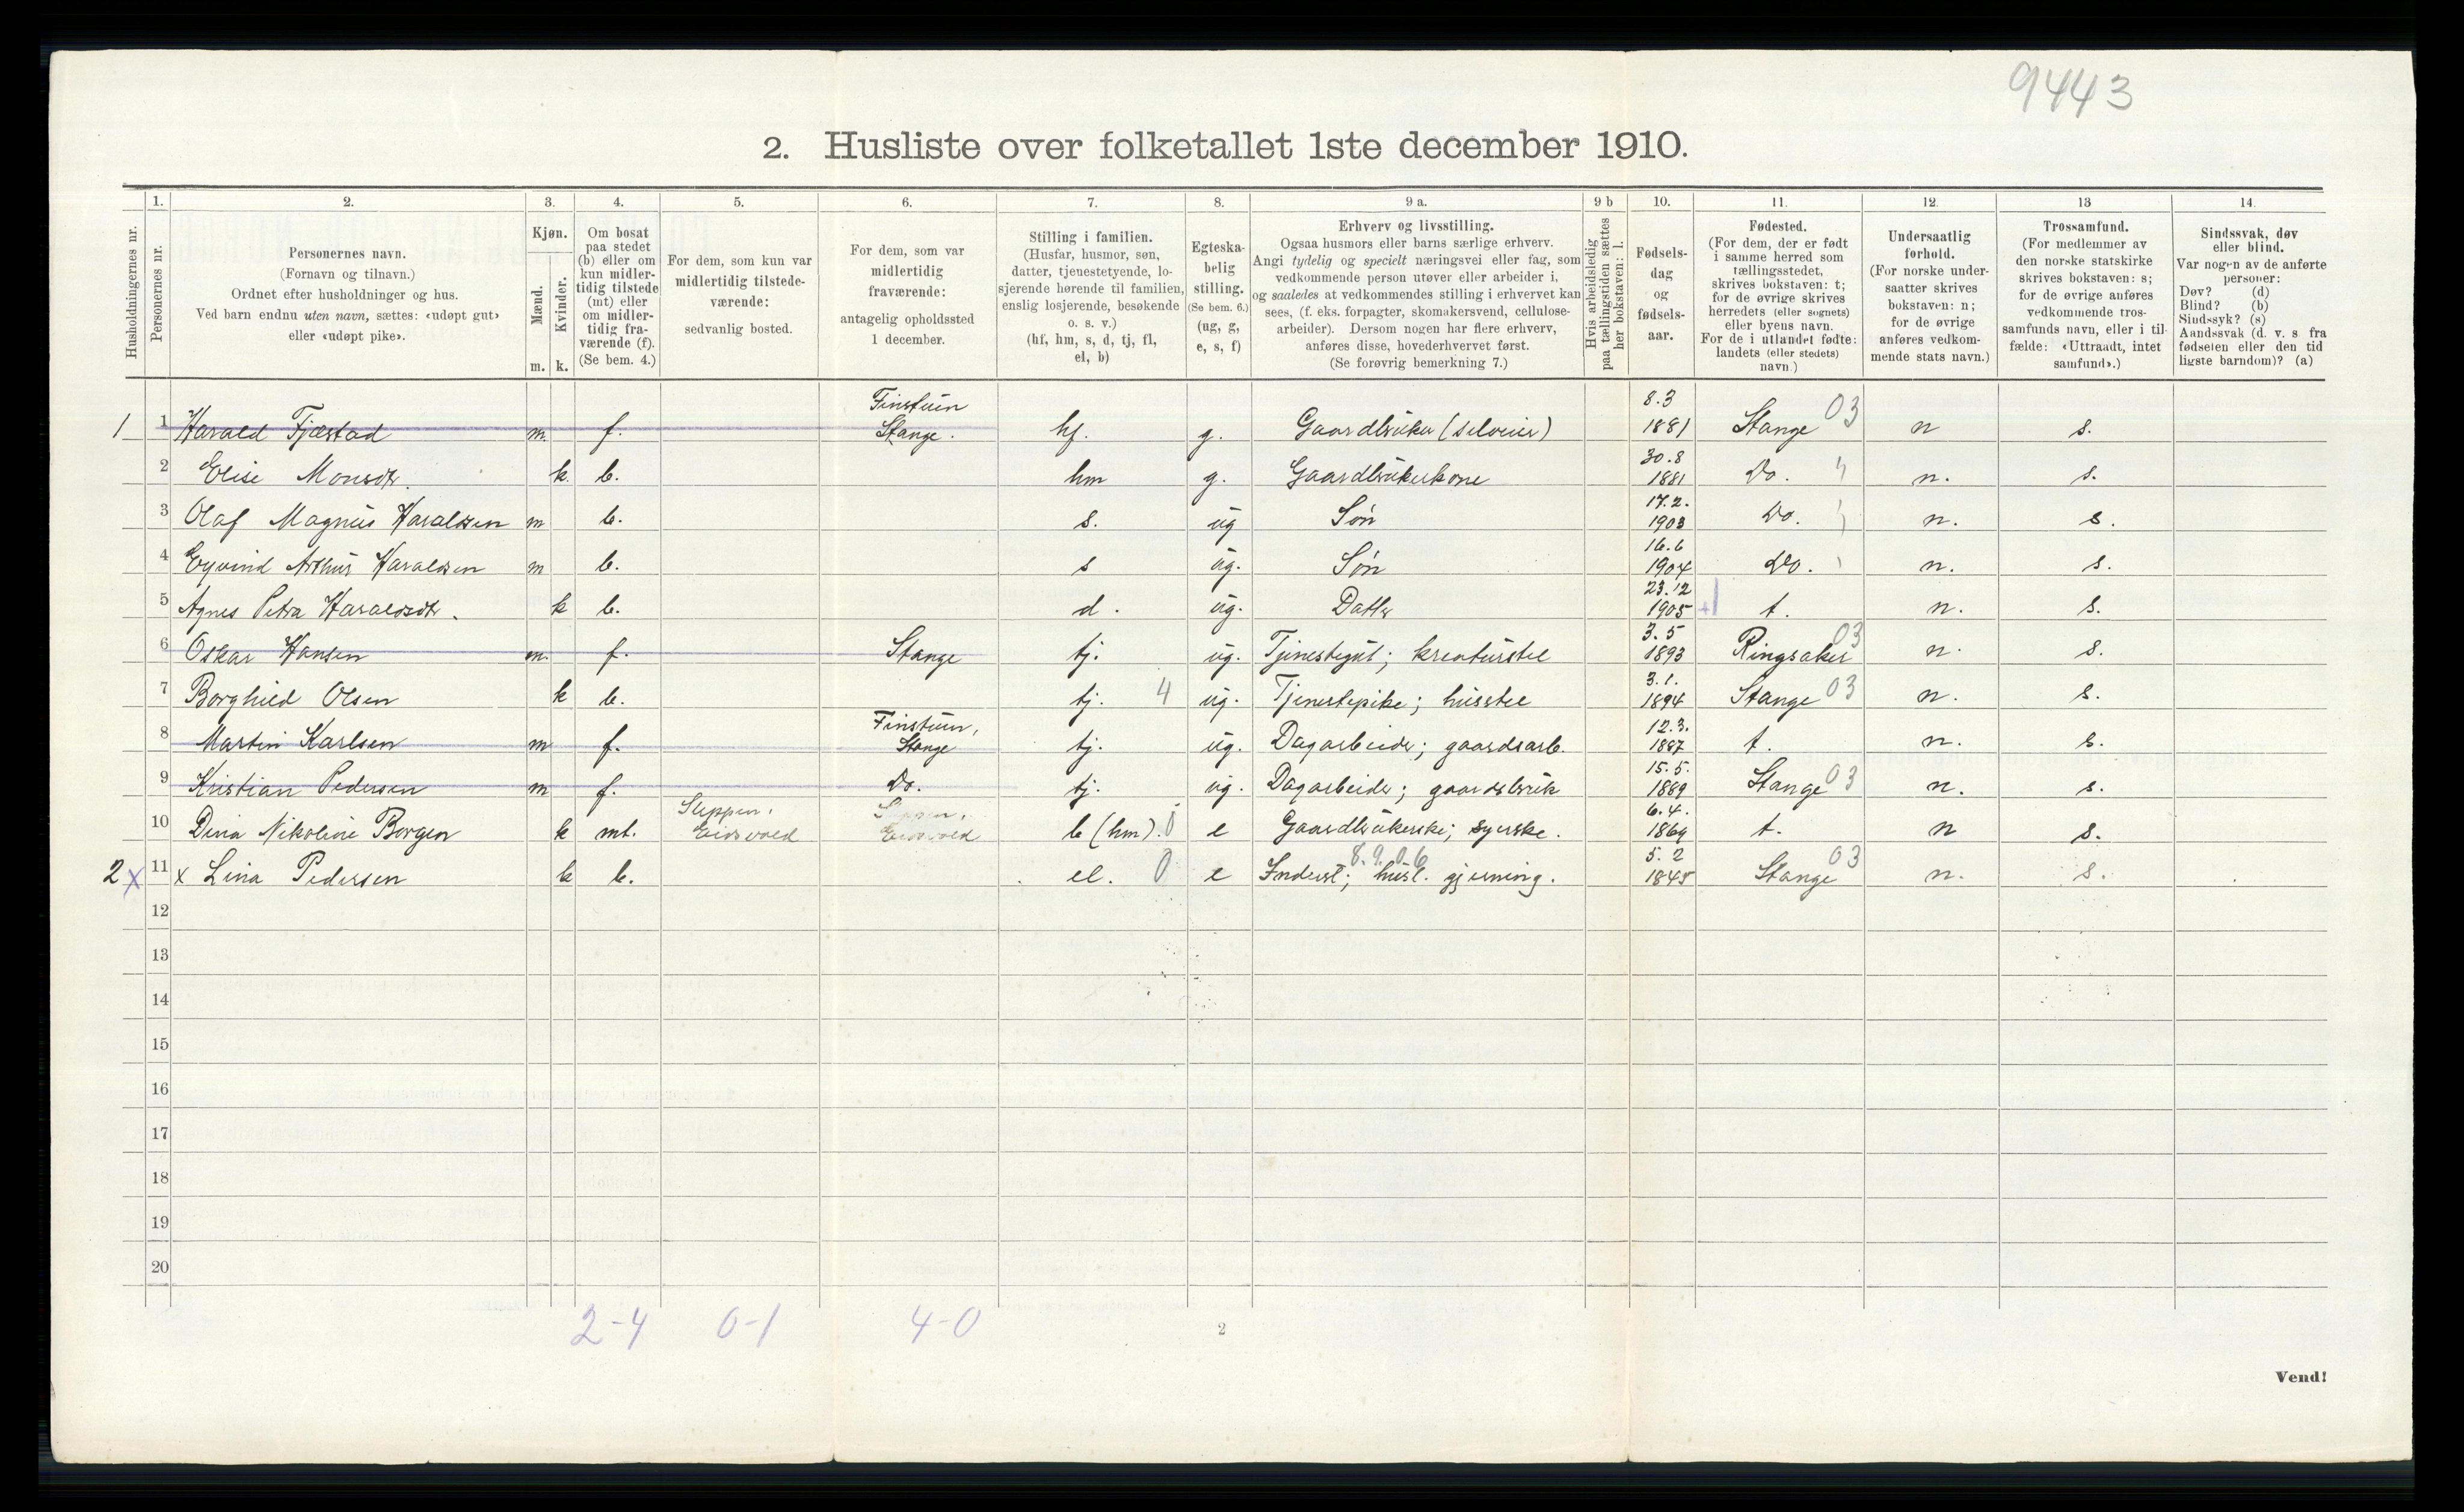 9443
2. Husliste over folketallet 1ste december 1910.
1. 2. 3. 4. 5. 6. 7. 8. 9 a. 9 b 10. 11. 12. 13 14.
Husholdningernes nr.
Personernes nr.
Personernes navn.
(Fornavn og tilnavn.)
Ordnet efter husholdninger og hus.
Ved barn endnu uten navn, sættes: «udøpt gut»
eller «udøpt pike».
Kjøn.
Mænd.
Kvinder.
m. k.
Om bosat
paa stedet
(b) eller om
kun midler-
tidig tilstede
(mt) eller
om midler-
tidig fra-
værende (f).
(Se bem. 4.)
For dem, som kun var
midlertidig tilstede-
værende:
sedvanlig bosted.
For dem, som var
midlertidig
fraværende:
antagelig opholdssted
1 december.
Stilling i familien.
(Husfar, husmor, søn,
datter, tjenestetyende, lo-
sjerende hørende til familien,
enslig losjerende, besøkende
o. s. v.)
(hf, hm, s, d, tj, fl,
el, b)
Egteska-
belig
stilling.
(Se bem. 6.)
(ug, g,
e, s, f)
Erhverv og livsstilling.
Ogsaa husmors eller barns særlige erhverv.
Angi tydelig og specielt næringsvei eller fag, som
vedkommende person utøver eller arbeider i,
og saaledes at vedkommendes stilling i erhvervet kan
sees, (f. eks. forpagter, skomakersvend, cellulose-
arbeider). Dersom nogen har flere erhverv,
anføres disse, hovederhvervet først.
(Se forøvrig bemerkning 7.)
Hvis arbeidsledig
paa tællingstiden sættes
her bokstaven: l.
Fødsels-
dag
og
fødsels-
aar.
Fødested.
(For dem, der er født
i samme herred som
tællingsstedet,
skrives bokstaven: t;
for de øvrige skrives
herredets (eller sognets)
eller byens navn.
For de i utlandet fødte:
landets (eller stedets)
navn.)
Undersaatlig
forhold.
(For norske under-
saatter skrives
bokstaven: n;
for de øvrige
anføres vedkom-
mende stats navn.)
Trossamfund.
(For medlemmer av
den norske statskirke
skrives bokstaven: s;
for de øvrige anføres
vedkommende tros-
samfunds navn, eller i til-
fælde: «Uttraadt, intet
samfund».)
Sindssvak, døv
eller blind.
Var nogen av de anførte
personer:
Døv? (d)
Blind? (b)
Sindssyk? (s)
Aandssvak (d. v. s. fra
fødselen eller den tid
ligste barndom)? (a)
1 1 Harald Fjæstad m. f. Finstuen Stange. hf. g. Gaardbruker (selveier) 8.3 1881 Stange 03 n s.
2 Elise Monsdtr. k. b. hm g. Gaardbrukerkone 30.8 1881 Do. n. s.
3 Olaf Magnus Haraldsen m b. s. ug Søn 17.2. 1903 Do. n. s.
4 Eyvind Arthur Haraldsen m b. s ug. Søn 16.6 1904 Do. n. s.
5 Agnes Petra Haraldsdtr. k b. d. ug. Datter 23.12 1905 t. n. s.
6 Oskar Hansen m. f. Stange tj. ug. Tjenestegut; kreaturstel 3.5 1893 Ringsaker 03 n. s.
7 Borghild Olsen k b. tj. 4 ug. Tjenestepike; husstel 3.1. 1894 Stange 03 n. s.
8 Martin Karlsen m f. Finstuen, Stange tj. ug. Dagarbeider; gaardsarb. 12.3. 1887 t. n. s.
9 Kristian Pedersen m f. Do. tj. ug. Dagarbeider; gaardsbruk 15.5. 1889 Stange 03 n. s.
10 Dina Nikoline Borgen k mt. Eidsvold Eidsvold b (hm). 0 e Gaardbrukerske; syerske. 6.4. 1869 t. n s.
2 x 11 x Lina Pedersen k b. el. 0 e Inderst; husl. gjerning. 8.9.0.6 5.2 1845 Stange 03 n. s.
12
13
14
15
16
17
18
19
20
2-4 0-1 4-0
2
Vend!